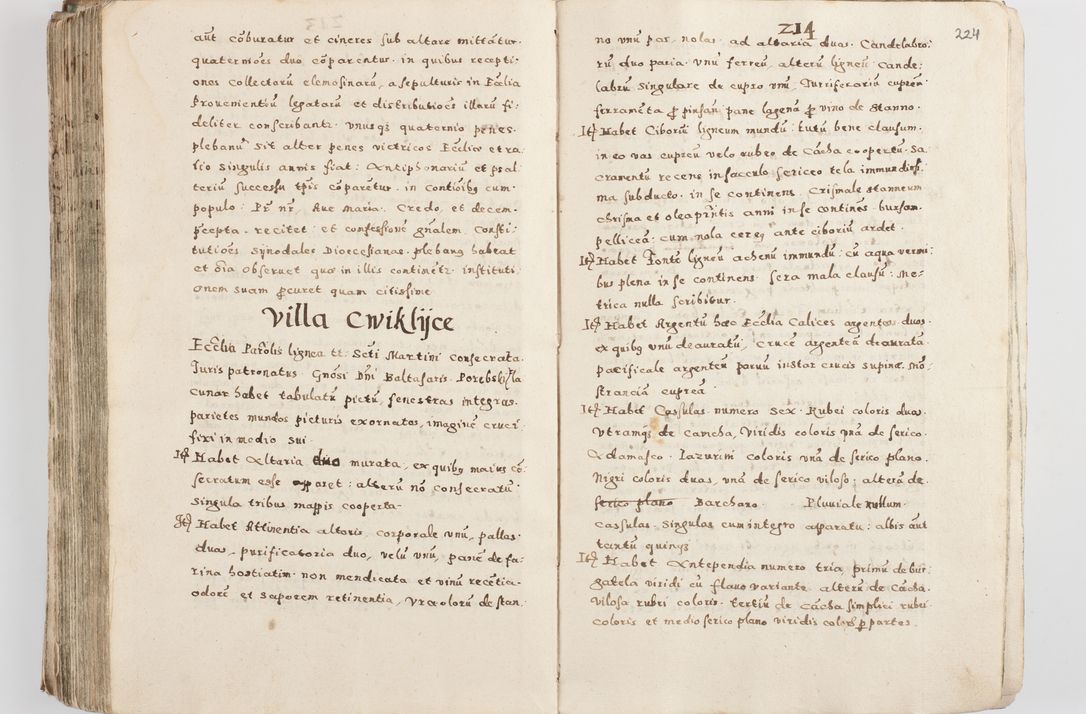 aūt cōburatur et cineres sub altare mittātur.
quaterniōes duo cōparentur. in quibus recepti-
ones collectarū elemosinarū, a sepulturis in Ecclīa
Provenientiū legatarū et distributiōes illarū fi-
deliter conscribantr. unusq3 quaternio penes.
plebanū sit alter penes victricos Ecclīae et ra-
tio singulis annis fiat: Antiphonariū et psal-
teriū successu tp̄is cōparētur. in contioībq cum.
populo: Pr̄ nr̄, Ave Maria. Credo, et decem.
p̄cepta. recitet: et confessionē gn̄alem. Consti-
tutiōes synodales Dioecesianae. plebang habeat
et oīa observet quae in illis continētr. instituti-
onem suam p̄curet quam citissime
Villa Cwiklyce
Ecclīa Parōlis lignea tt: Scti Martini consecrata.
Juris patronatus Gnōsi Dn̄i Baltasaris. Porębski, la
cunar habet tabulatū pictū, fenestras integras.
parietes mundos picturis exornatos, imaginē cruci
fixi in medio sui
Itē Habet Altaria duo murata, ex quibq maius cō-
secratum esse apparet: alterū nō consecratū
singula tribus mappis cooperta
Itē Habet Attinentia altaris, corporale unū, pallas.
duas, purificatoria duo, velū unū, panē de fa-
rina hostiatim. non mendicata et vinū recētia.
odorē et saporem retinentia, Urceolorū de stan.
214
224
no unū par, nolas. ad altaria duas. Candelabro:
rū duo paria. unū ferreū, alterū ligneū. Cande:
labrū singulare de cupro unū, Turriferariū cupreū
ferramēta p̄ pinsan. pane lagenā p̄ vino de stanno.
Itē Habet Ciborīu ligneum mundū: tutū bene clausum.
in eo vas cupreū velo rubro de Cācha coopertū. Sa.
cramentū recens in sacculo sericeo tela immundiss̄.
ma subducto. in se continens. Crismale stanneum
chrisma et olea p̄ntis anni in se continēs bursam.
pelliceā: cum nola cereq ante ciboriū ardet.
Itē Habet Fontē ligneū achenū immundū: cū aqua vermi:
bus plena in se continens sera mala clausū: me-
trica nulla scribitur.
Itē Habet Argentū haec Ecclīa Calices argenteos duos.
ex quibq unū deauratū, crucē argenteā deaurata.
pacificale argenteū parvū instar crucis supinae. mō-
stranciā cupreā
Itē Habet Cassulas numero sex. Rubei coloris duas.
Utramq3 de camcha, viridis coloris unā de serico.
Adamasco. Lazurini coloris unā de serico plano.
Nigri coloris duas, unā de serico viloso. alterā de.
serico plano Barchano. Pluviale nullum.
cassulas. singulas cum integro apparatu: albis aūt
tantū quinq3
Itē Habet Antependia numero tria, primū de bur
gatela viridi cū flavo variante. alterū de Cācha.
vilosa rubri coloris. tertiū de cācha simplici rubei.
coloris et medio serico plano viridis coloris p̄ partes.